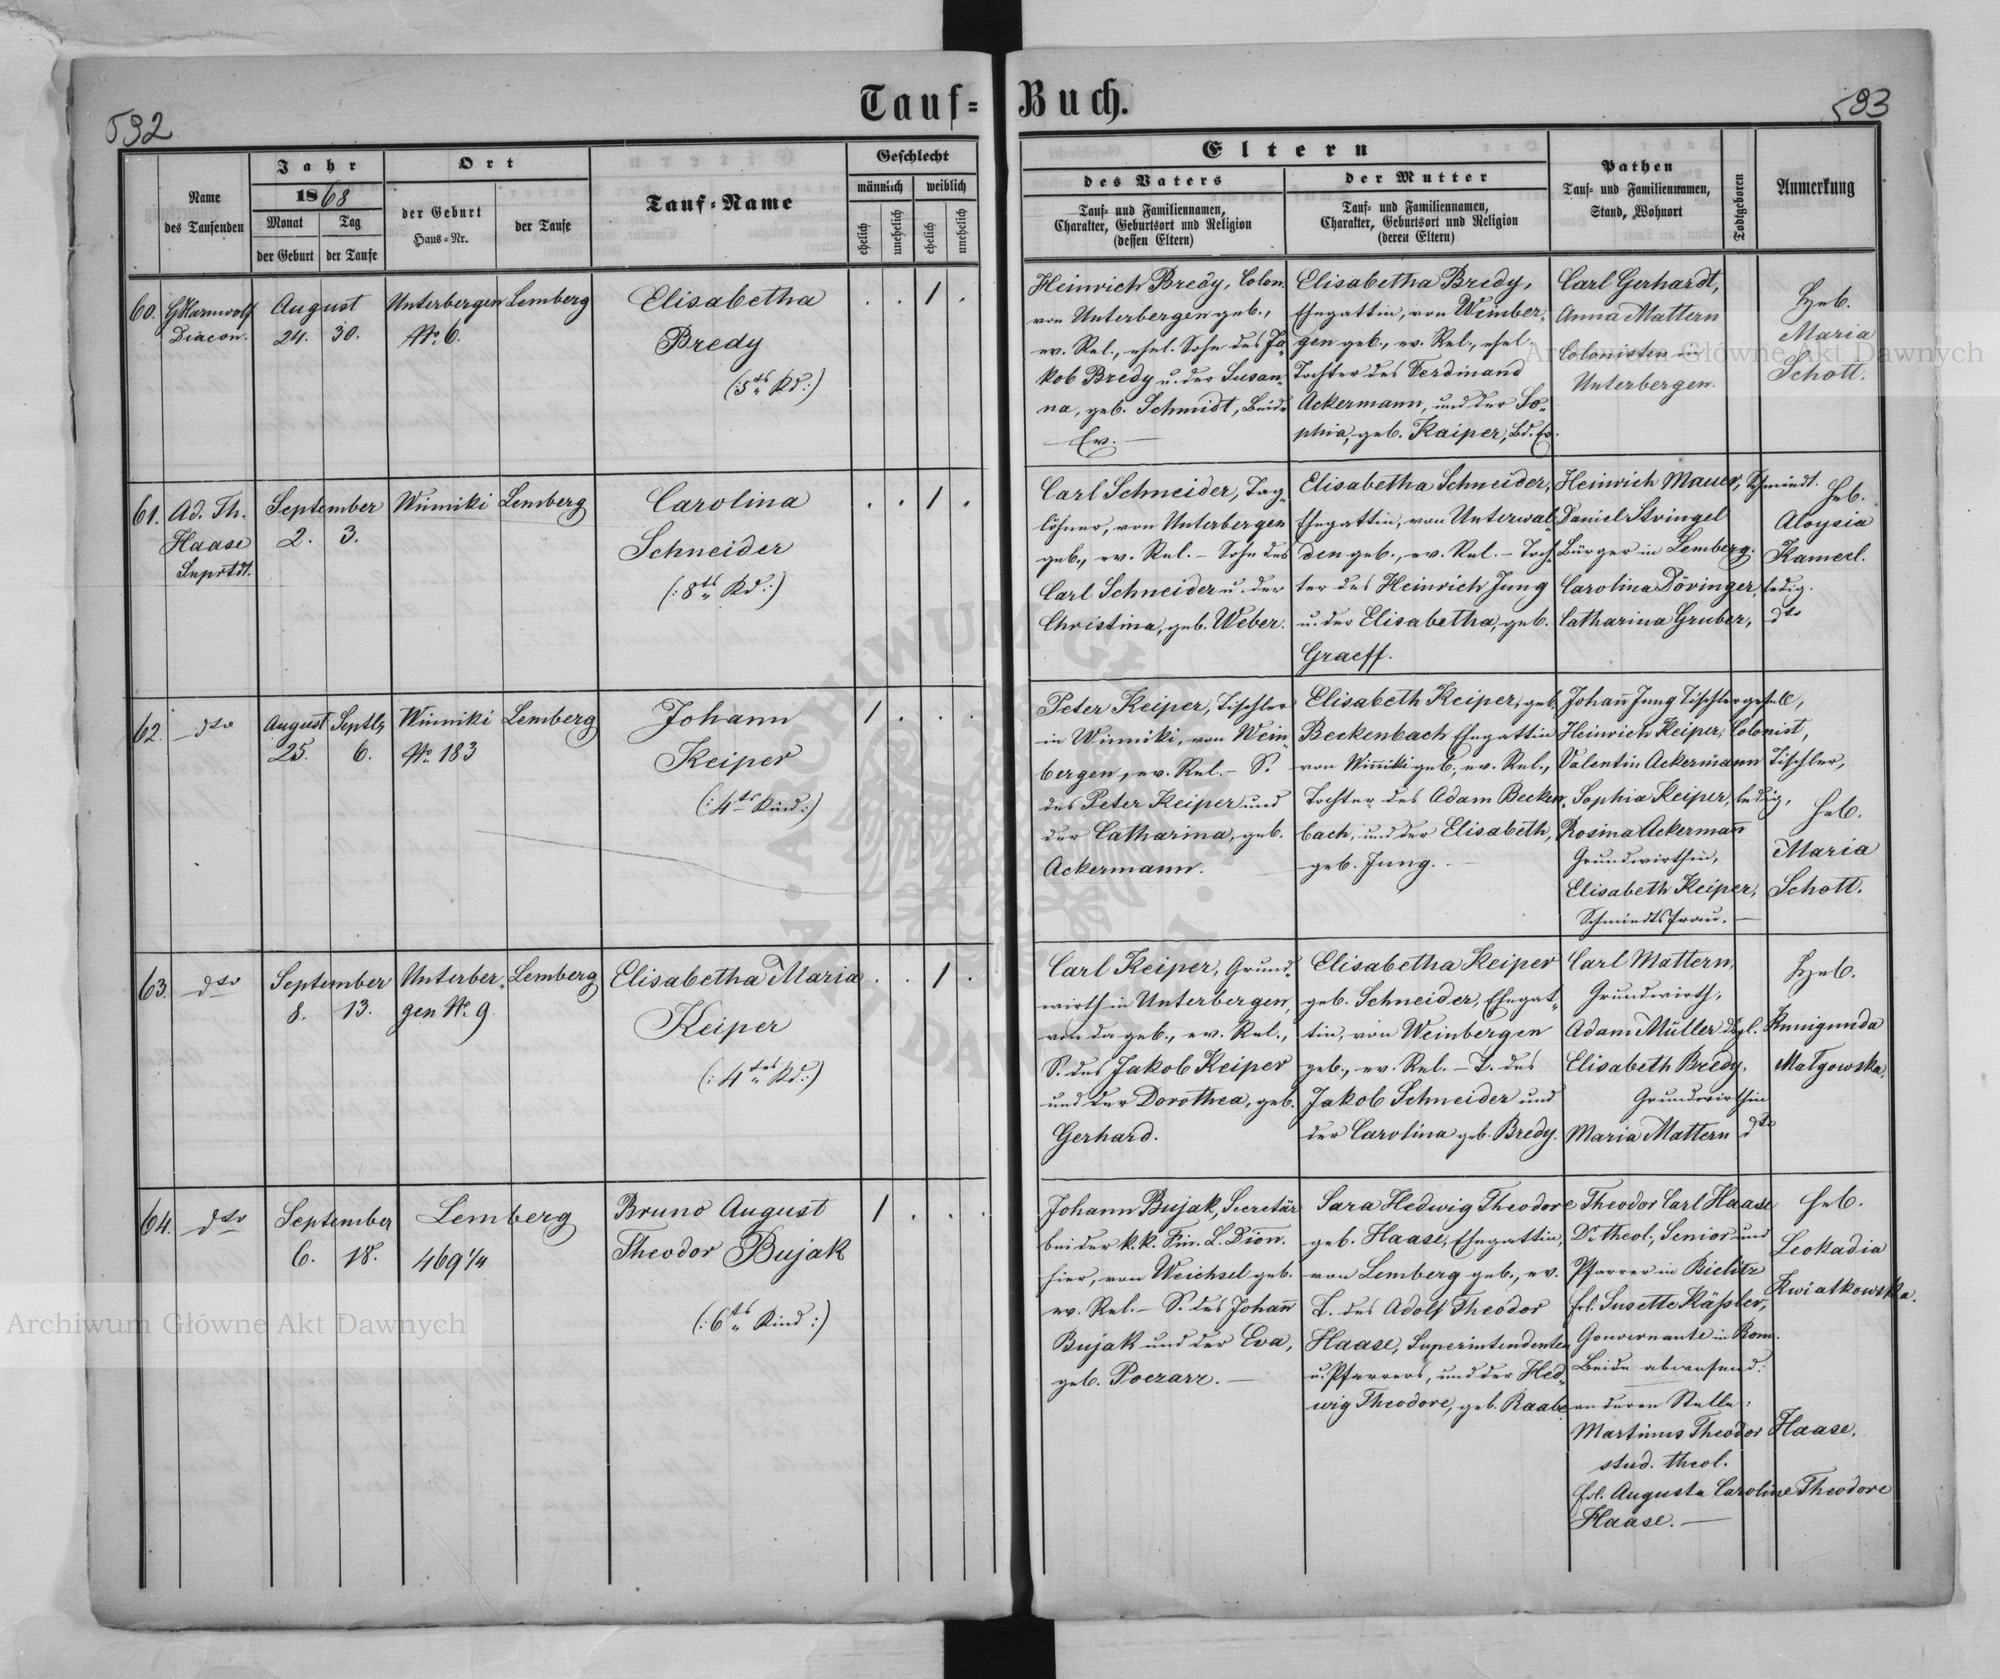 Tauf-Buch.
592
593
Name
des Taufenden
Jahr
1868
Monat
Tag
der Geburt
der Taufe
Ort
der Geburt
Haus-Nr.
der Taufe
Tauf-Name
Geschlecht
männlich
weiblich
ehelich
unehelich
ehelich
unehelich
Eltern
des Vaters
Tauf- und Familiennamen,
Charakter, Geburtsort und Religion
(dessen Eltern)
der Mutter
Tauf- und Familiennamen,
Charakter, Geburtsort und Religion
(deren Eltern)
Pathen
Tauf- und Familiennamen,
Stand, Wohnort
Todtgeboren
Anmerkung
60.
Diacon.
August
24. 30.
Unterbergen
No. 6.
Lemberg
Elisabetha
Bredy
(:5tes Kd:)
. . 1 .
Heinrich Bredy, Colon.
von Unterbergen geb.,
ev. Rel., ehel. Sohn des Ja-
kob Bredy u. der Susan-
na, geb. Schmidt, Beide
Ev. —
Elisabetha Bredy,
Ehegattin, von Weinber-
gen geb., ev. Rel., ehel.
Tochter des Ferdinand
Ackermann, und der So-
phia, geb. Kaiper, Bd. Ev.
Carl Gerhardt,
Anna Mattern
Colonisten in
Unterbergen.
Heb.
Maria
Schott.
61.
Ad. Th.
Haase
Suprtdt.
September
2. 3.
Winniki
Lemberg
Carolina
Schneider
(:8tes Kd:)
. . 1 .
Carl Schneider, Tag-
löhner, von Unterbergen
geb., ev. Rel. – Sohn des
Carl Schneider u. der
Christina, geb. Weber.
Elisabetha Schneider,
Ehegattin, von Unterwal-
den geb., ev. Rel. – Toch-
ter des Heinrich Jung
u. der Elisabetha, geb.
Graeff.
Heinrich Mauer, Schmiedt.
Daniel Stringel
Bürger in Lemberg.
Carolina Döringer, ledig.
Catharina Gruber, dto
Heb.
Aloysia
Kamerl.
62.
dto
August Septbr
25. 6.
Winniki
No. 183
Lemberg
Johann
Keiper
(:4tes Kind:)
1 . . .
Peter Keiper, Tischler
in Winniki, von Wein-
bergen, ev. Rel. – S.
des Peter Keiper und
der Catharina, geb.
Ackermann.
Elisabeth Keiper, geb.
Beckenbach Ehegattin
von Winniki geb., ev. Rel.,
Tochter des Adam Becken-
bach, und der Elisabeth,
geb. Jung. –
Johann Jung Tischlergesell,
Heinrich Keiper, Colonist,
Valentin Ackermann Tischler,
Sophia Keiper, ledig,
Rosina Ackermann
Grundwirthin,
Elisabeth Keiper,
Schmiedtsfrau. —
Heb.
Maria
Schott.
63.
dto
September
8. 13.
Unterber-
gen No. 9.
Lemberg
Elisabetha Maria
Keiper
(:4tes Kd:)
. . 1 .
Carl Keiper, Grund-
wirth in Unterbergen,
von da geb., ev. Rel.,
S. des Jakob Keiper
und der Dorothea, geb.
Gerhard.
Elisabetha Keiper
geb. Schneider, Ehegat-
tin, von Weinbergen
geb., ev. Rel. – T. des
Jakob Schneider und
der Carolina geb. Bredy.
Carl Mattern,
Grundwirth,
Adam Müller dsgl.
Elisabeth Bredy,
Grundwirthin
Maria Mattern dto
Heb.
Kunigunda
Matgowska.
64.
dto
September
6. 18.
Lemberg
469 1/4
Bruno August
Theodor Bujak
(:6tes Kind:)
1 . . .
Johann Bujak, Secretär
bei der k.k. Fin. L. Dion.
hier, von Weichsel geb.
ev. Rel. – S. des Johann
Bujak und der Eva,
geb. Poczarz. —
Sara Hedwig Theodore
geb. Haase, Ehegattin,
von Lemberg geb., ev.
T. des Adolf Theodor
Haase, Superintendenten
u. Pfarrers, und der Hed-
wig Theodore, geb. Raabe
Theodor Carl Haase
Dr theol., Senior und
Pfarrer in Bielitz
Frl. Susette Käßler,
Gouvernante in Rom.
Beide abwesend:
an deren Stelle:
Martinus Theodor Haase,
stud. theol.
Frl. Augusta Caroline Theodore
Haase. —
Heb.
Leokadia
Kwiatkowska.
Archiwum Główne Akt Dawnych
Archiwum Główne Akt Dawnych